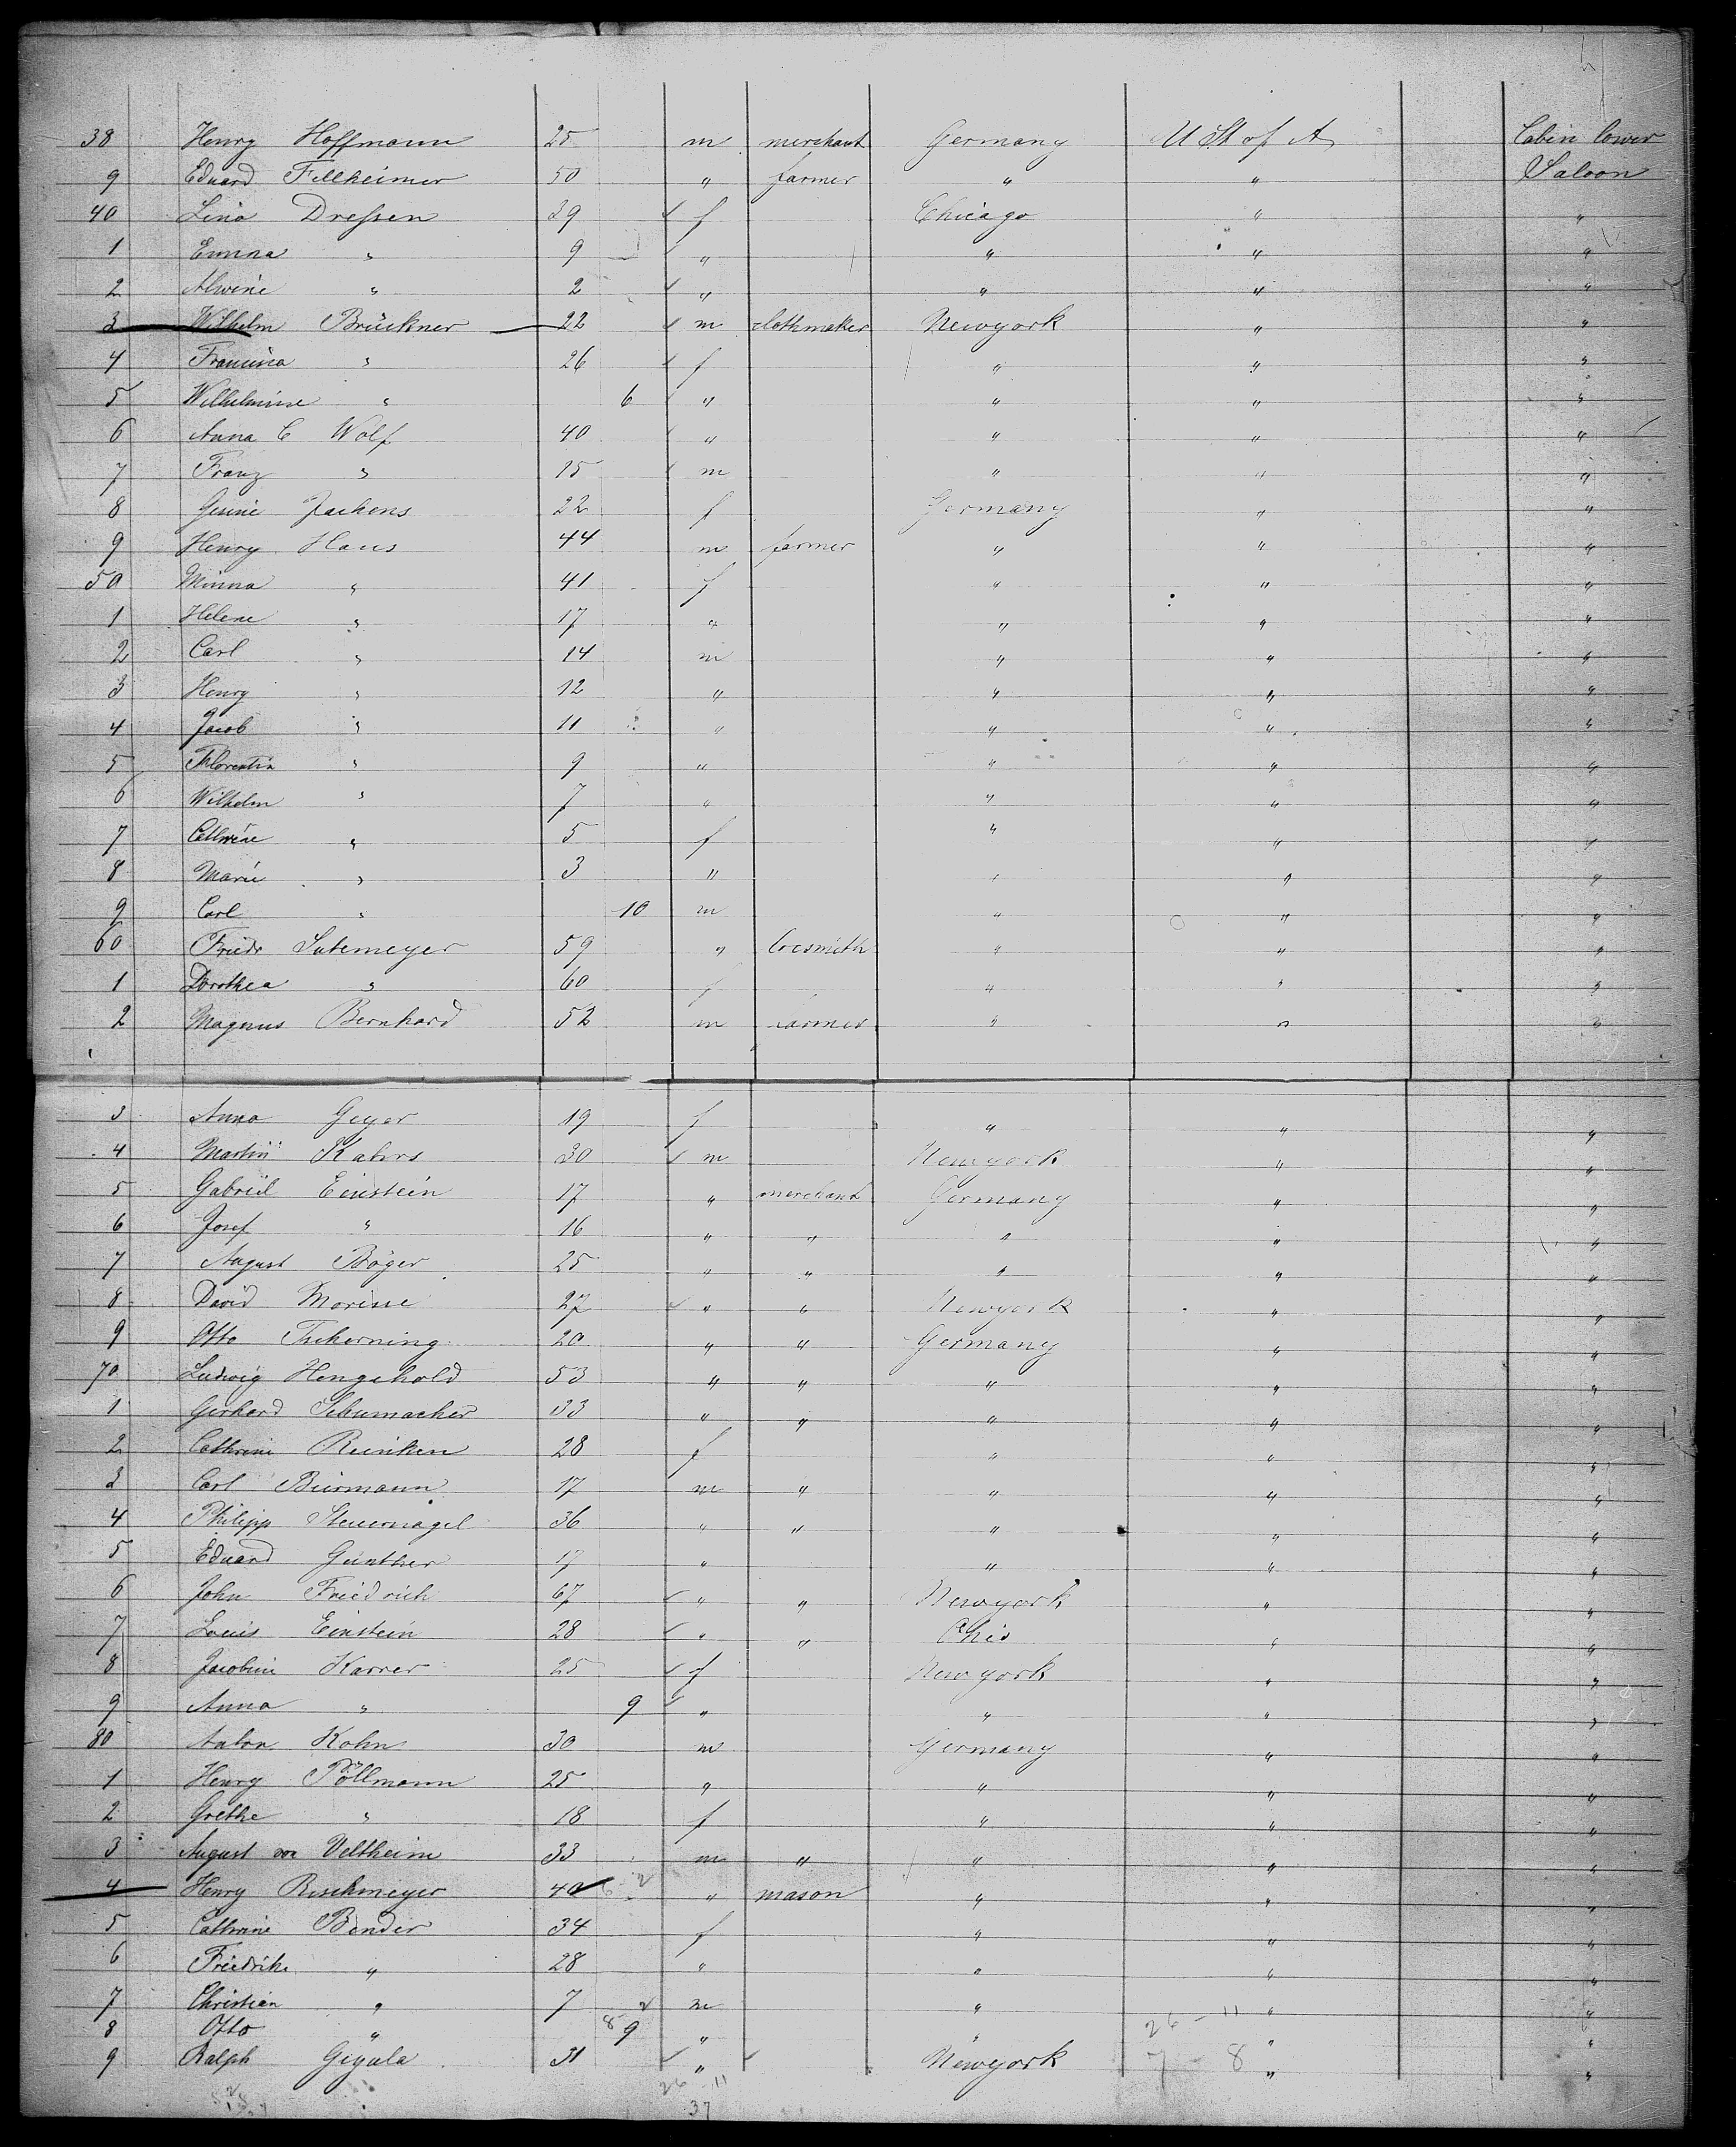 38 Henry Hoffmann 25 m merchant Germany U St of A Cabin lower
9 Eduard Fellheimer 50 " farmer " " Saloon
40 Lina Dressen 39 f Chicago " "
1 Emma " 9 " " " "
2 Alwine " 2 " " " "
3 Wilhelm Brückner 22 m clothmaker Newyork " "
4 Francisca " 26 f " " "
5 Wilhelmine " 6 " " " "
6 Anna C Wolf 40 " " " "
7 Franz " 15 m " " "
8 Gesine Jachens 22 f Germany " "
9 Henry Haus 44 m farmer " " "
50 Minna " 41 f " " "
1 Helene " 17 " " " "
2 Carl " 14 m " " "
3 Henry " 12 " " " "
4 Jacob " 11 " " " "
5 Florentin " 9 " " " "
6 Wilhelm " 7 " " " "
7 " 5 f " " "
8 Marie " 3 " " " "
9 Carl " 10 m " " "
60 Friedr Sutemeyer 59 " locsmith " " "
1 Dorothea " 60 f " " "
2 Magnus Bernhard 52 m farmer " " "
3 Anna Geyer 19 f " " "
4 Martin Kahrs 30 m Newyork " "
5 Gabriel Einstein 17 " merchant Germany " "
6 Josef " 16 " " " " "
7 August Böger 25 " " " " "
8 David Morisse 27 " " Newyork " "
9 Otto 20 " " Germany " "
70 Ludwig Hengehold 53 " " " " "
1 Gerhard Schumacher 33 " " " " "
2 Cathrine Reinken 28 f " " "
3 Carl Biermann 17 m " " " "
4 Philipp Steuernagel 36 " " " " "
5 Eduard Günther 17 " " " "
6 John Friedrich 67 " " Newyork " "
7 Louis Einstein 28 " " Ohio " "
8 Jacobine Karrer 25 f New york " "
9 Anna " 9 " " " "
80 Anton Kohn 30 m Germany " "
1 Henry Pöllmann 25 " " " "
2 Grethe " 18 f " " "
3 August von Veltheim 33 m " " " "
4 Henry Rischmeyer 40 " mason " " "
5 Cathrine Bender 34 f " " "
6 Friedrike " 28 " " " "
7 Christian " 7 m " " "
8 Otto " 9 " " 26 - 11 " "
9 Ralph 31 " Newyork 7 - 8 " "
26 - 11
37